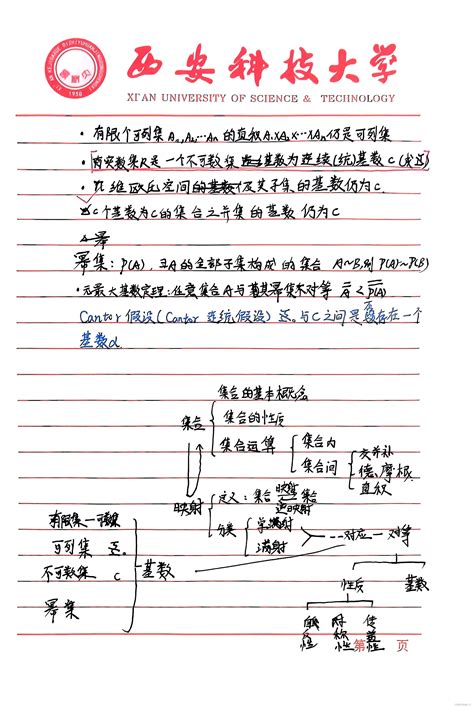 西安科技大学
XI'AN UNIVERSITY OF SCIENCE & TECHNOLOGY
1958
·有限个可列集A₁,A₂,…Aₙ的直积A₁×A₂×…×Aₙ仍是可列集
·实数集R是一个不可数集 基数为连续(统)基数c(定理)
·n维欧氏空间的基数及其子集的基数仍为c.
c个基数为c的集合之并集的基数仍为c
幂
幂集:P(A),∃A的全部子集构成的集合 A~B,则P(A)~P(B)
·无最大基数定理:任意集合A与其幂集不对等
Cantor假设(Cantor连续假设) 与c之间是 存在一个
基数α.
集合的基本概念
集合 集合的性质
集合运算 集合内
集合间 交并补
德、摩根
直积
映射 定义:集合 映射 集合
逆映射
分类 单满射
满射 一一对应—对等
有限集—可数集
可列集
不可数集 c
幂集
基数
性质 基数
对称性 传递性
第 页